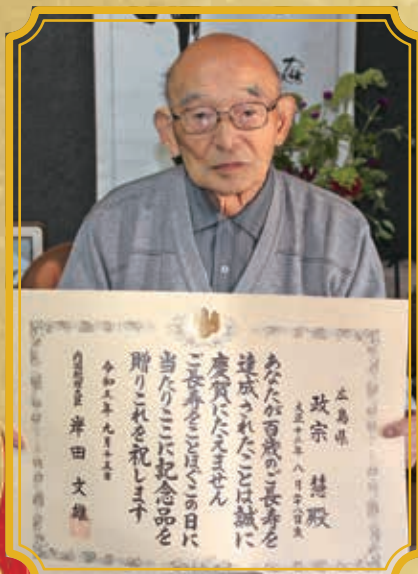 広島県
政宗 慧殿
あなたが百歳のご長寿を
達成されたことは誠に
慶賀にたえません
ご長寿をことほぐこの日に
当たりここに記念品を
贈りこれを祝します
九月十五日
内閣総理大臣 岸田 文雄